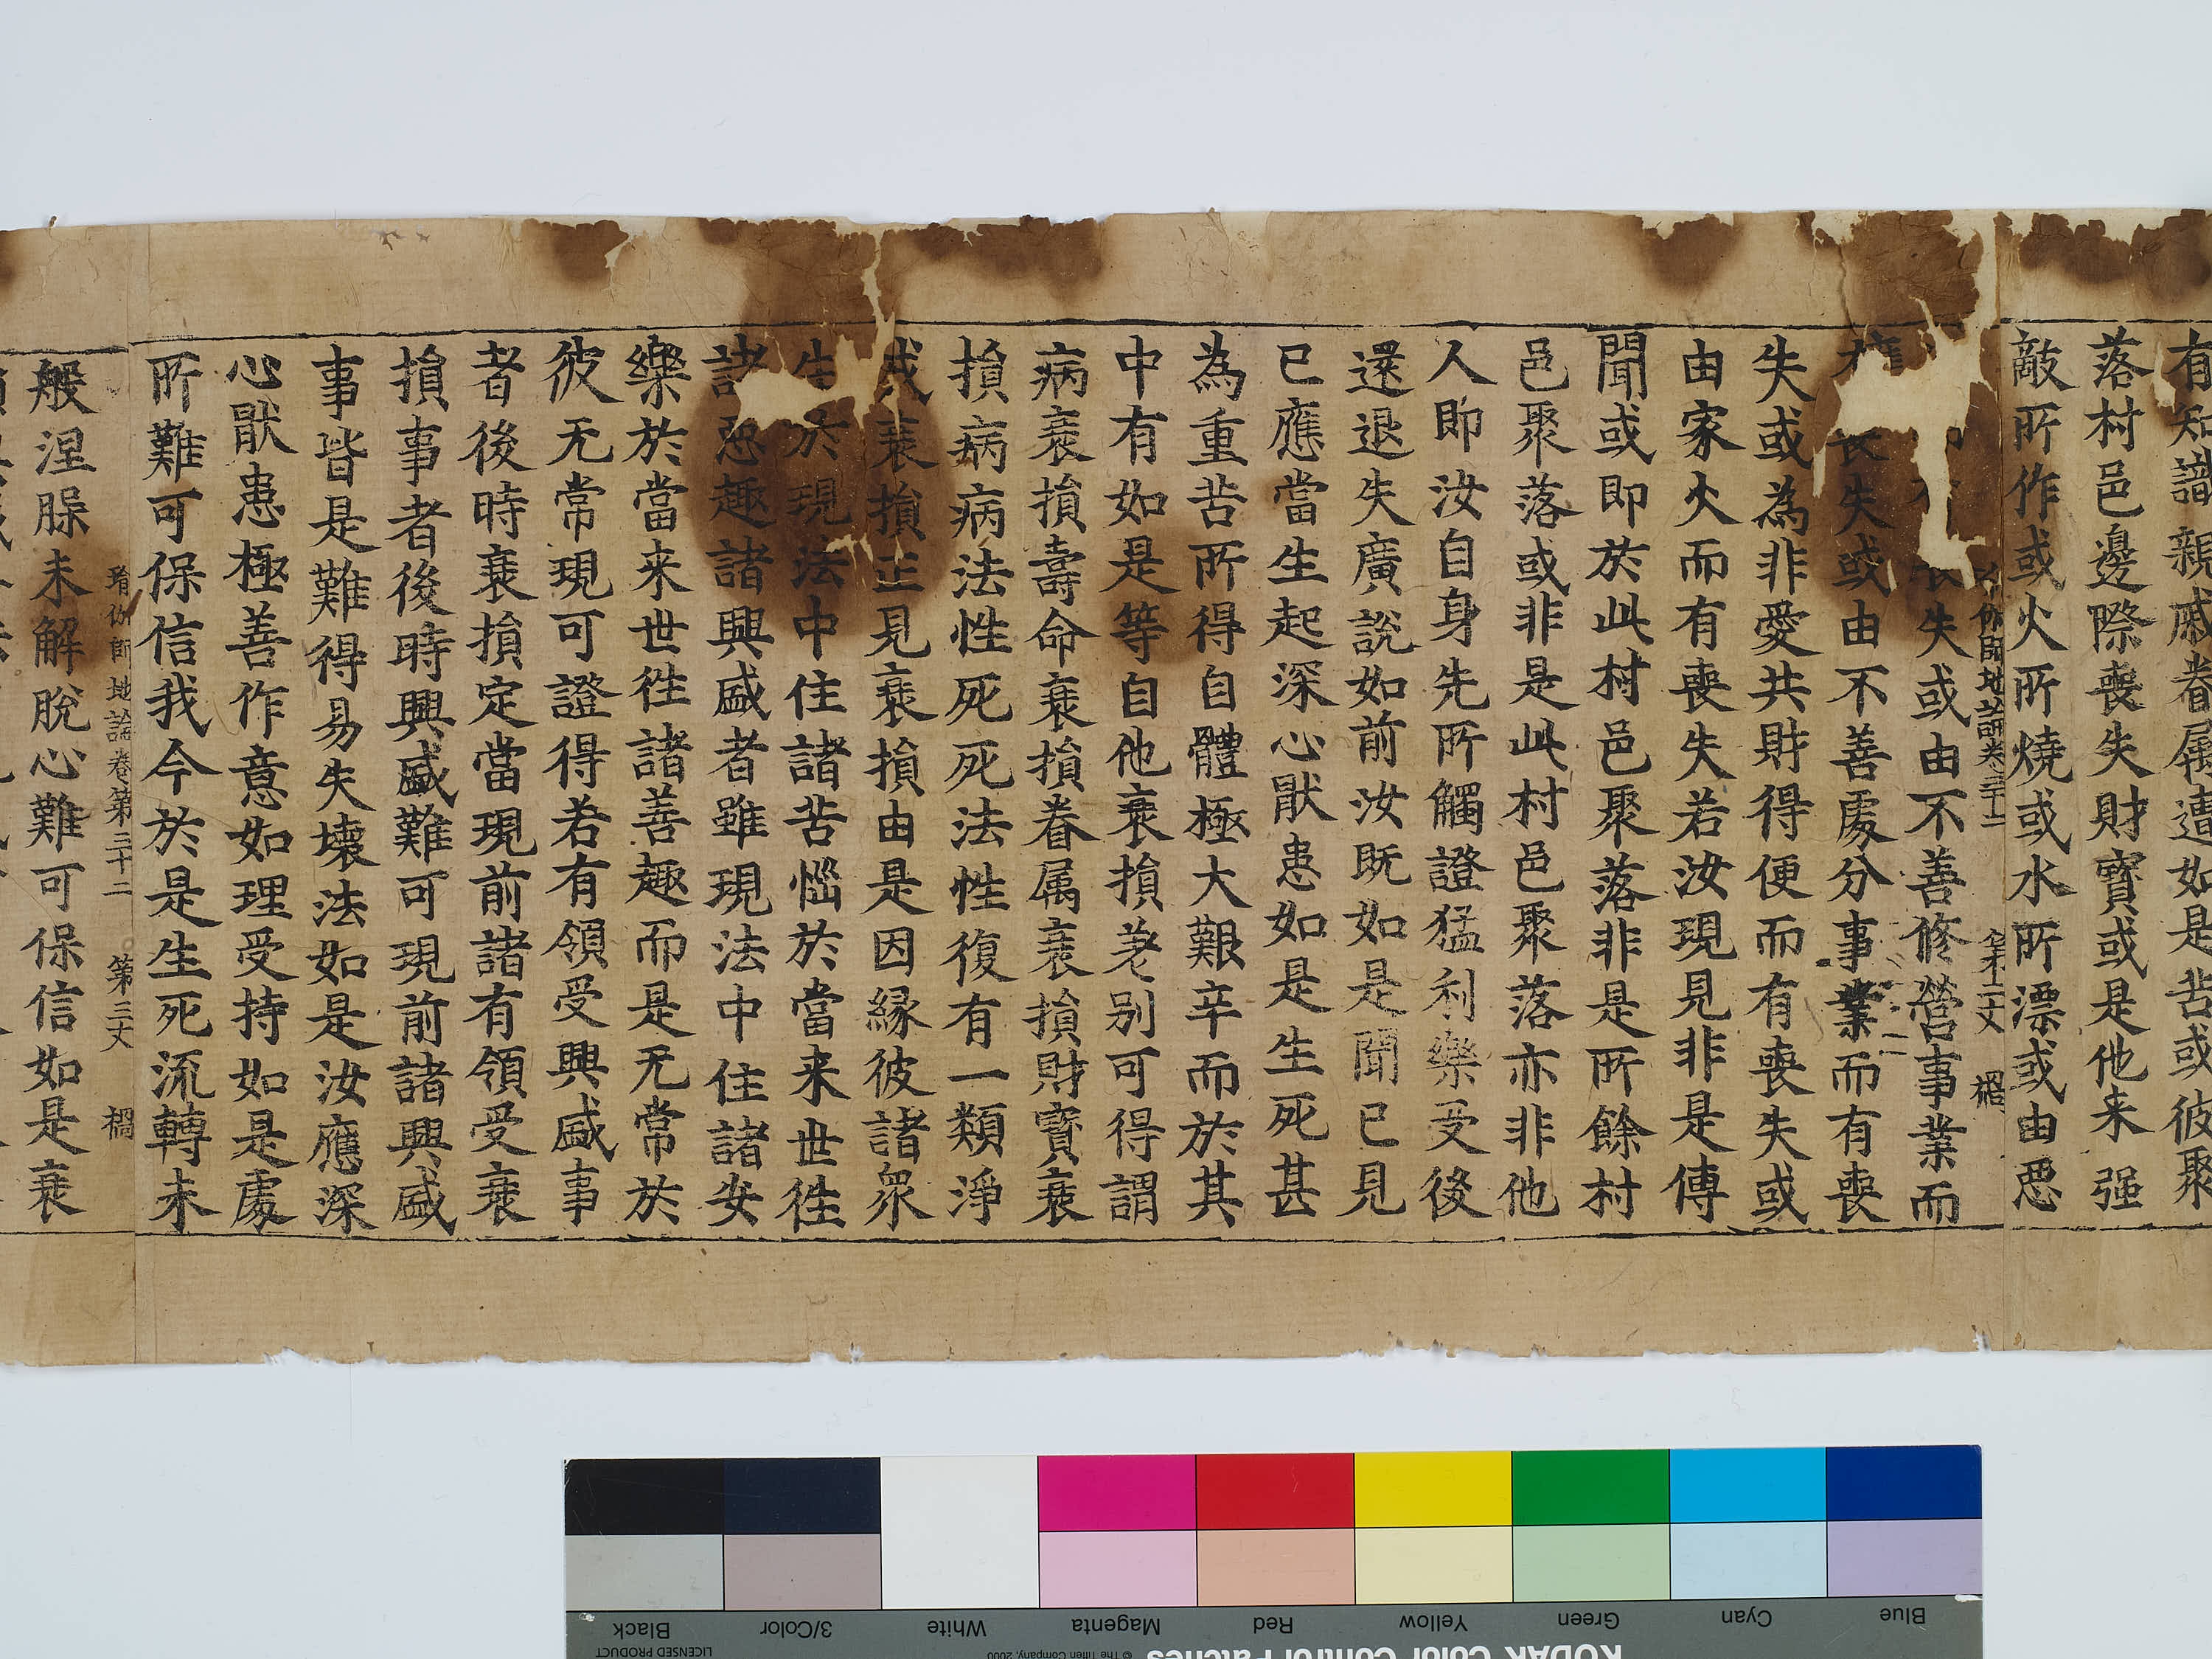 有知識親戚眷属遭如是苦或彼聚
落村邑邊際喪失財寶或是他来强
敵所作或火所燒或水所漂或由惡
瑜伽師地論卷三十二 第二丈 楊
失或由不善修營事業而
喪失或由不善處分事業而有喪
失或為非愛共財得便而有喪失或
由家火而有喪失若汝現見非是傳
聞或即於此村邑聚落非是所餘村
邑聚落或非是此村邑聚落亦非他
人即汝自身先所觸證猛利樂受後
還退失廣說如前汝既如是聞已見
已應當生起深心猒患如是生死甚
為重苦所得自體極大艱辛而於其
中有如是等自他衰損差别可得謂
病衰損壽命衰損眷属衰損財寶衰
損病病法性死死法性復有一類淨
戒衰損正見衰損由是因緣彼諸衆
生於現法中住諸苦惱於當来世往
諸惡趣諸興盛者雖現法中住諸安
樂於當来世往諸善趣而是无常於
彼无常現可證得若有領受興盛事
者後時衰損定當現前諸有領受衰
損事者後時興盛難可現前諸興盛
事皆是難得易失壞法如是汝應深
心猒患極善作意如理受持如是處
所難可保信我今於是生死流轉未
瑜伽師地論卷第三十二 第三丈 楊
般涅槃未解脫心難可保信如是衰